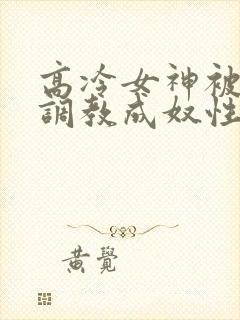 高冷女神被
調教成奴性
黃覺